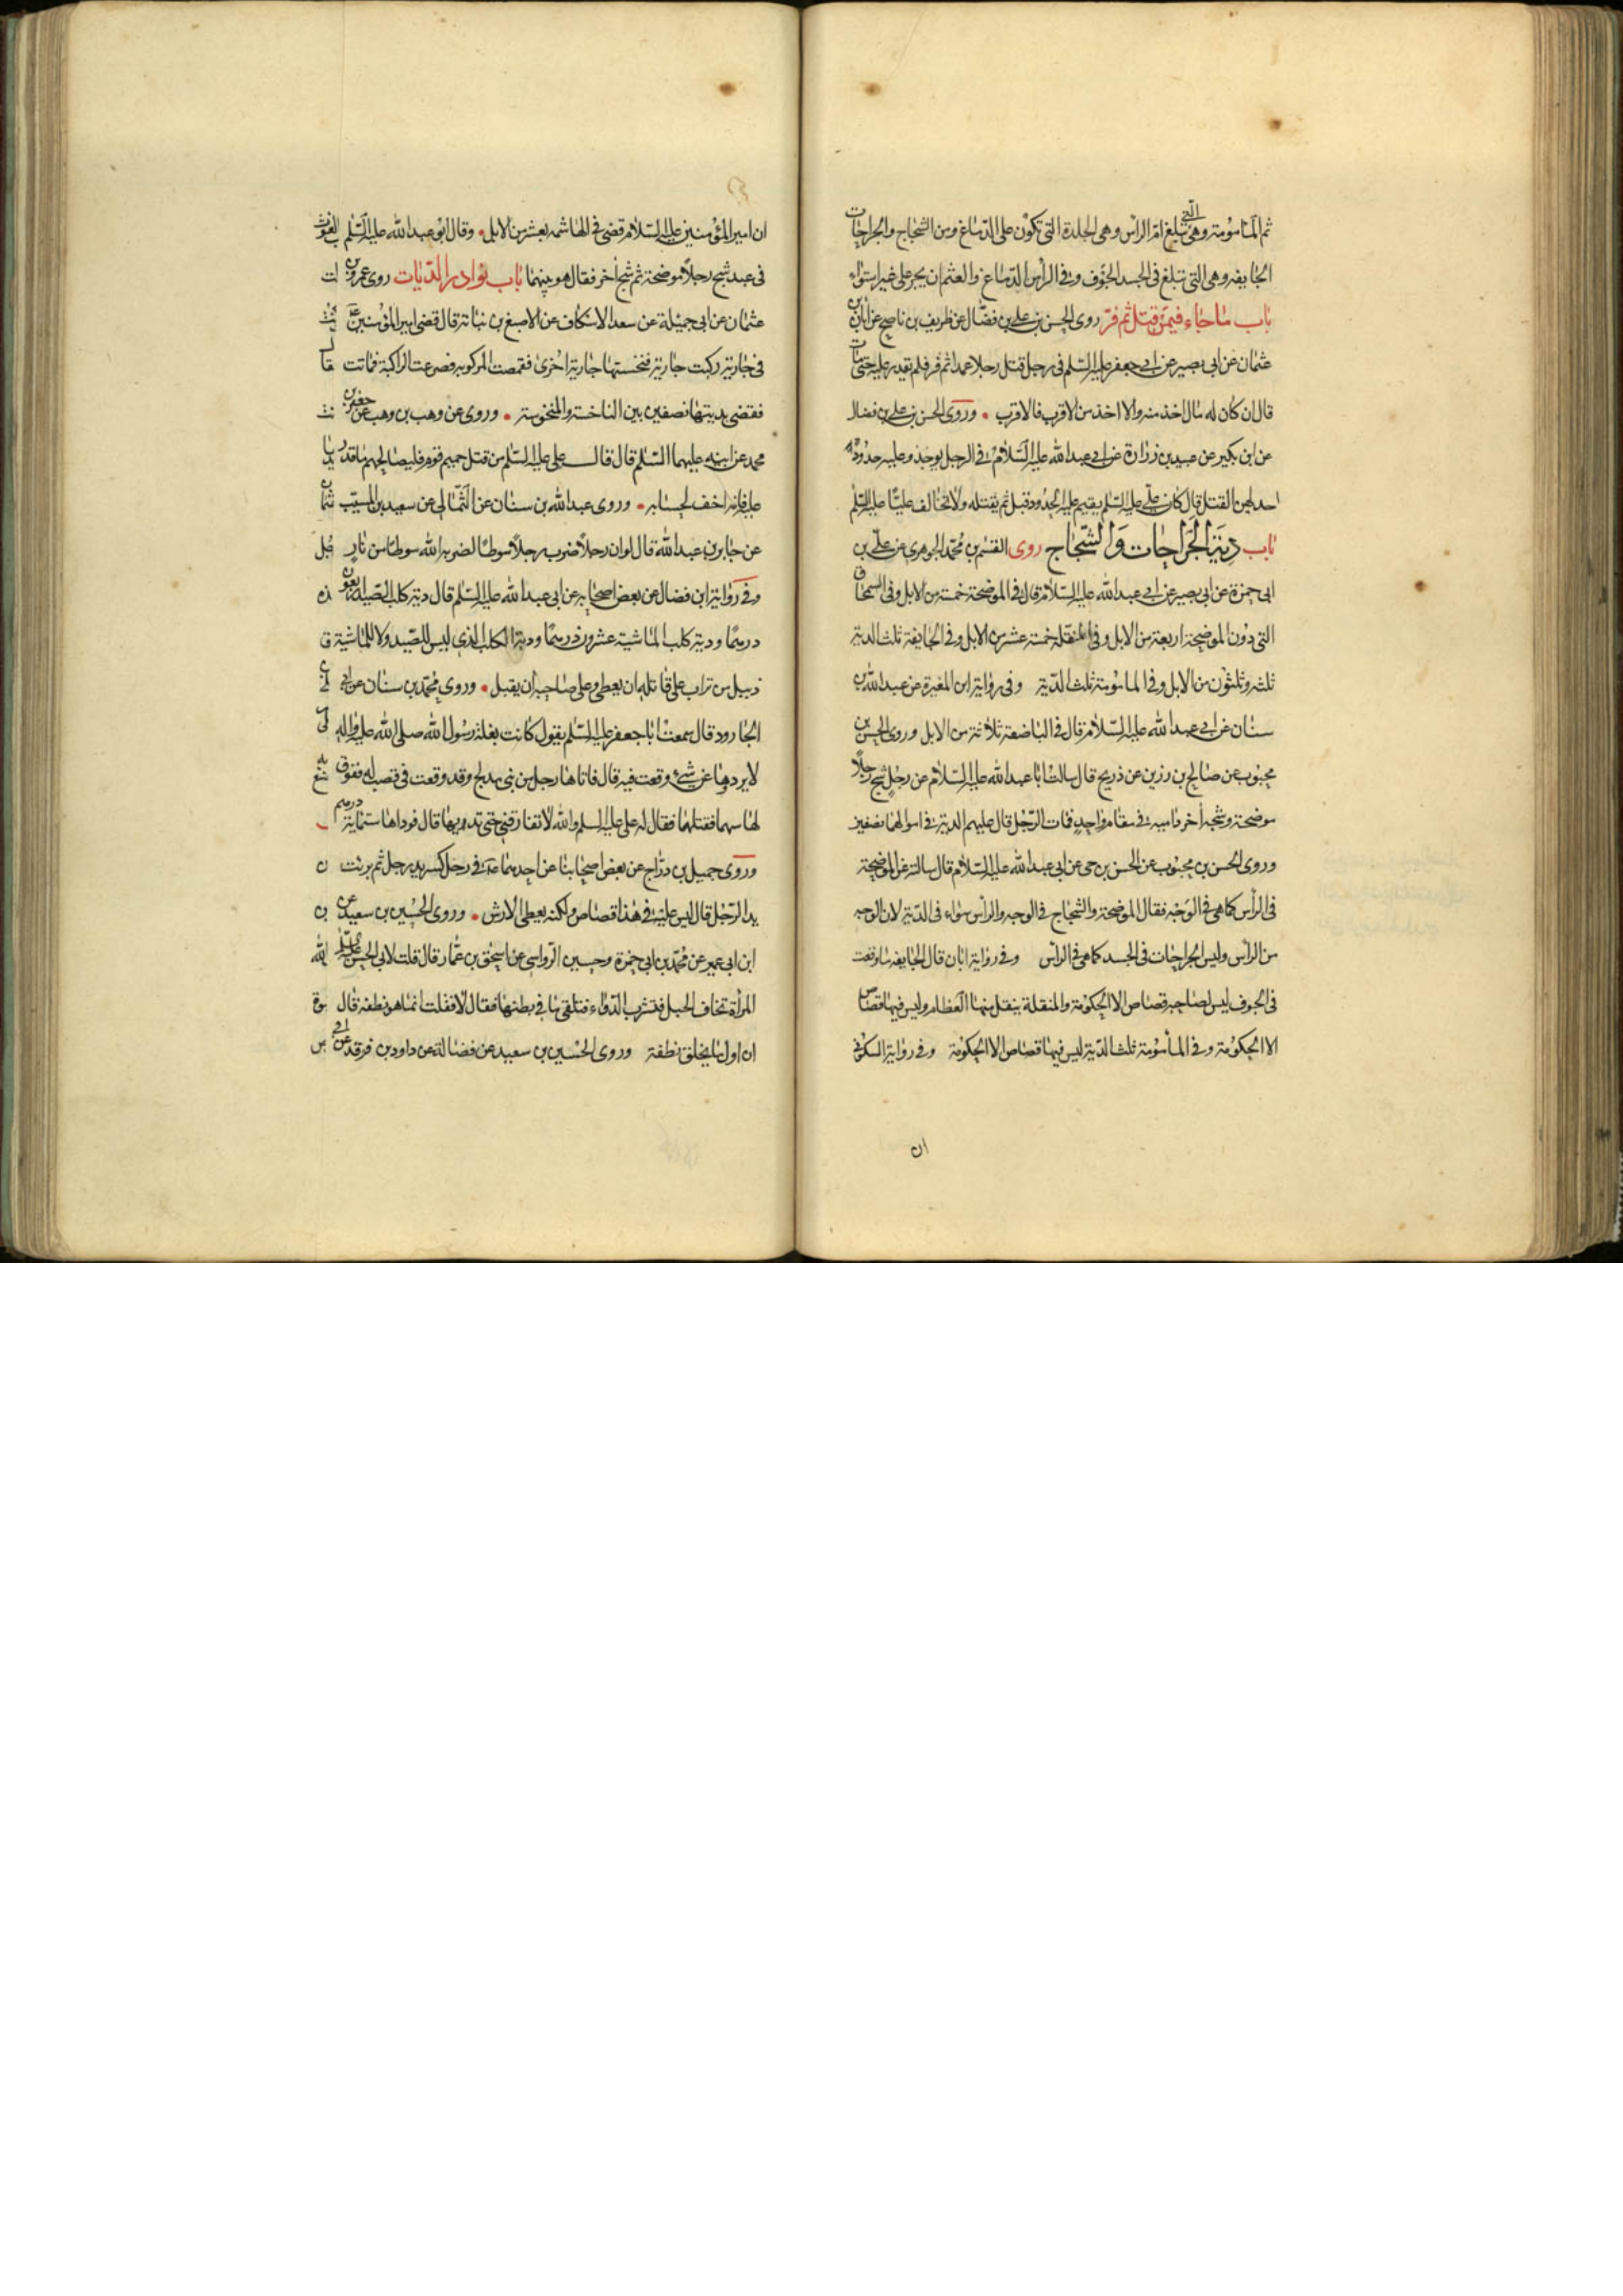 ثم المأمومة وهى التى تبلغ ام الرأس وهى الجلدة التى تكون على الدماغ ومن الشجاج والجراحات
الجايفه وهى التى تبلغ فى الجسد الجوف وفى الرأس الدماغ والعثم ان يجبر على غير استواء
باب ما جاء فيمن قتل ثم فر روى الحسن بن على بن فضال عن ظريف بن ناصح عن ابان بن
عثمان عن ابى بصير عن ابى جعفر عليه السلم فى رجل قتل رجلا عمدا ثم فر فلم يقدر عليه حتى مات
قال ان كان له مال اخذ منه والا اخذ من الاقرب فالاقرب وروى الحسن بن على بن فضال
عن ابن بكير عن عبيد بن زرارة عن ابى عبد الله عليه السلام فى الرجل يوخذ وعليه حدود
احدهن القتل قال كان على عليه السلم يقيم عليه الحدود قبل ثم يقتله ولا تخالف عليا عليه السلم
باب دية الجراحات والشجاج روى القسم بن محمد الجوهرى عن على بن
ابى حمزة عن ابى بصير عن ابى عبد الله عليه السلام قال فى الموضحة خمسة من الابل وفى السمحاق
التى دون الموضحة اربعة من الابل وفى المنقله خمسة عشر من الابل وفى الجايفة ثلث الدية
ثلثه وثلثون من الابل وفى المامومة ثلث الدية وفى رواية ابن المغيرة عن عبد الله بن
سنان عن ابى عبد الله عليه السلام قال فى الباضعة ثلاثة من الابل وروى الحسن بن
محبوب عن صالح بن رزين عن ذريح قال سالت ابا عبد الله عليه السلام عن رجل شج رجلا
موضحة وشجه أخر دامية فى مقام واحد فمات الرجل قال عليهم الدية فى اموالهما نصفين
وروى الحسن بن محبوب عن الحسن بن حى عن ابى عبد الله عليه السلام قال سالته عن الموضحة
فى الرأس كما هى فى الوجه فقال الموضحة والشجاج فى الوجه والرأس سواء فى الدية لان الوجه
من الرأس وليس الجراحات فى الجسد كما هى فى الرأس وفى رواية ابان قال الجايفه ما وقعت
فى الجوف ليس لصاحبه قصاص الا الحكومة والمنقلة ينقل منها العظام وليس فيها قصاص
الا الحكومة وفى المأمومة ثلث الدية ليس فيها قصاص الا الحكومة وفى رواية السكونى
ان
ان امير المؤمنين عليه السلام قضى فى الهاشمه بعشر من الابل وقال ابو عبد الله عليه السلم
فى عبد شج رجلا موضحة ثم شج أخر فقال هو بينهما باب نوادر الديات روى عمرو بن
عثمان عن ابى جميلة عن سعد الاسكاف عن الاصبغ بن نباتة قال قضى امير المؤمنين
فى جارية ركبت جارية فنخستها جارية اخرى فقمصت المركوبه فصرعت الراكبة فماتت
فقضى بديتها نصفين بين الناخسة والمنخوسة وروى عن وهب بن وهب عن جعفر بن
محمد عن ابيه عليهما السلم قال قال على عليه السلم من قتل حميم قوم فليصالحهم ما قدر
عليه فانه اخف لحسابه وروى عبد الله بن سنان عن الثمالى عن سعيد بن المسيب
عن جابر بن عبد الله قال لو ان رجلا ضرب رجلا سوطا لضربه الله سوطا من نار
وفى رواية ابن فضال عن بعض اصحابه عن ابى عبد الله عليه السلم قال دية كلب الصيد اربعون
درهما ودية كلب الماشية عشرون درهما ودية الكلب الذى ليس للصيد ولا للماشية
زبيل من تراب على قاتله ان يعطى وعلى صاحبه ان يقبل وروى محمد بن سنان عن ابى
الجارود قال سمعت ابا جعفر عليه السلم يقول كانت بغلة رسول الله صلى الله عليه واله
لا يردها عن شئ وقعت فيه قال فاتاها رجل من بنى مدلج وقد وقعت فى قصب له ففوق
لها سهما فقتلها فقال له على عليه السلم والله لا تفارقنى حتى تديها قال فوداها ستمائة درهم
وروى جميل بن دراج عن بعض اصحابنا عن احدهما فى رجل كسر يد رجل ثم برئت
يد الرجل قال ليس عليه فى هذا قصاص ولكنه يعطى الارش وروى الحسين بن سعيد عن
ابن ابى عمير عن محمد بن ابى حمزة وحسين الرواسى عن اسحق بن عمار قال قلت لابى الحسن
المرأة تخاف الحبل فتشرب الدواء فتلقى ما فى بطنها فقال لا فقلت انما هو نطفه قال
ان اول ما يخلق نطفة وروى الحسين بن سعيد عن فضالة عن داود بن فرقد عن ابى